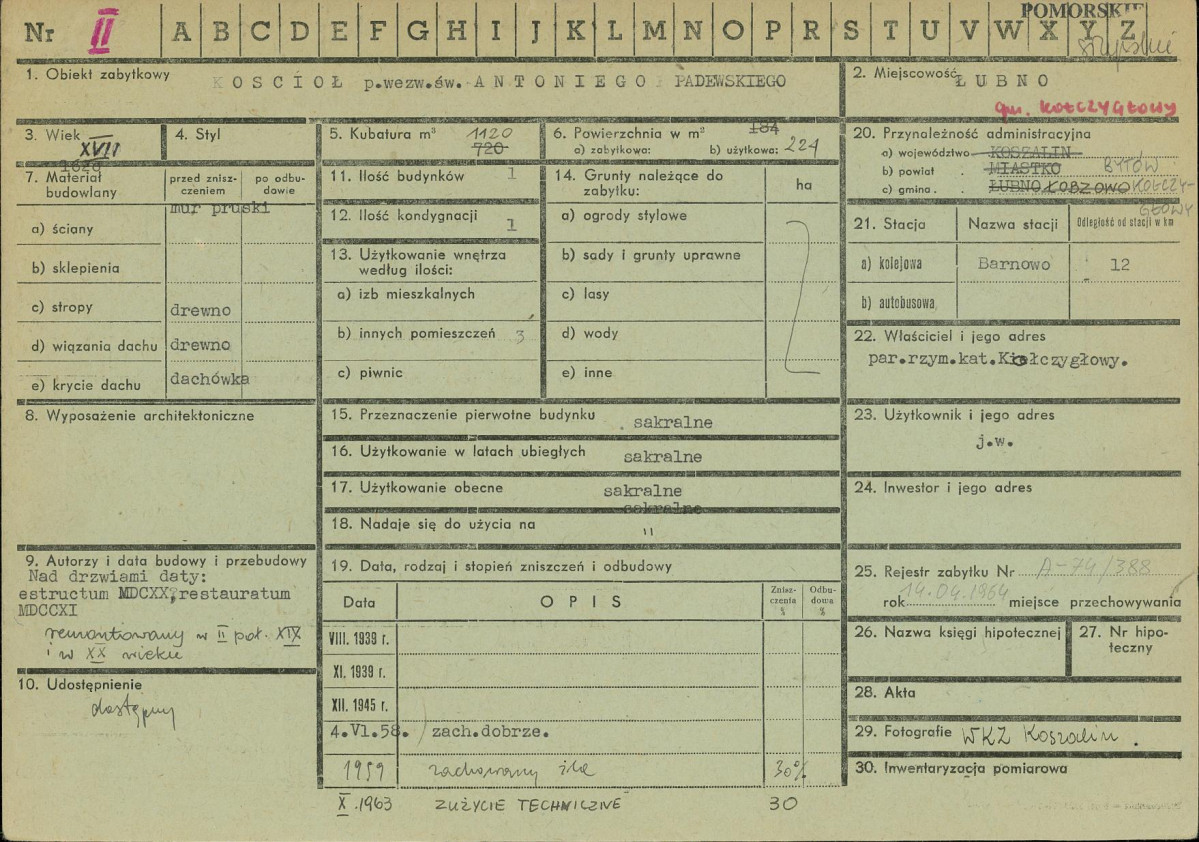 Nr II A B C D E F G H I J K L M N O P R S T U V W X Y Z
POMORSKIE
słupskie
1. Obiekt zabytkowy
KOSCIOŁ p.wezw.św. ANTONIEGO PADEWSKIEGO
2. Miejscowość
ŁUBNO
gm. KOŁCZYGŁOWY
3. Wiek
XVII
4. Styl
5. Kubatura m³ 1120
720
6. Powierzchnia w m² 184
a) zabytkowa: b) użytkowa: 224
7. Materiał budowlany
przed znisz-
czeniem
po odbu-
dowie
mur pruski
a) ściany
b) sklepienia
c) stropy drewno
d) wiązania dachu drewno
e) krycie dachu dachówka
8. Wyposażenie architektoniczne
9. Autorzy i data budowy i przebudowy
Nad drzwiami daty:
estructum MDCXX,restauratum
MDCCXI
remontowany w II poł. XIX
i w XX wieku
10. Udostępnienie
dostępny
11. Ilość budynków 1
12. Ilość kondygnacji
1
13. Użytkowanie wnętrza
według ilości:
a) izb mieszkalnych
b) innych pomieszczeń 3
c) piwnic
14. Grunty należące do
zabytku:
ha
a) ogrody stylowe
b) sady i grunty uprawne
c) lasy
d) wody
e) inne
15. Przeznaczenie pierwotne budynku sakralne
16. Użytkowanie w latach ubiegłych sakralne
17. Użytkowanie obecne sakralne
sakralne
18. Nadaje się do użycia na "
19. Data, rodzaj i stopień zniszczeń i odbudowy
Data OPIS
Znisz-
czenia
%
Odbu-
dowa
%
VIII. 1939 r.
XI. 1939 r.
XII. 1945 r.
4.VI.58. zach.dobrze.
1959 zachowany źle 30%
X.1963 ZUŻYCIE TECHNICZNE 30
20. Przynależność administracyjna
a) województwo KOSZALIN
b) powiat . MIASTKO BYTÓW
c) gmina . ŁUBNO ŁOBZOWO KOŁCZY-
GŁOWY
21. Stacja Nazwa stacji Odległość od stacji w km
a) kolejowa Barnowo 12
b) autobusowa
22. Właściciel i jego adres
par.rzym.kat.Kołczygłowy.
23. Użytkownik i jego adres
j.w.
24. Inwestor i jego adres
25. Rejestr zabytku Nr A-74/388
rok 14.04.1964 miejsce przechowywania
26. Nazwa księgi hipotecznej
27. Nr hipo-
teczny
28. Akta
29. Fotografie WKZ Koszalin.
30. Inwentaryzacja pomiarowa